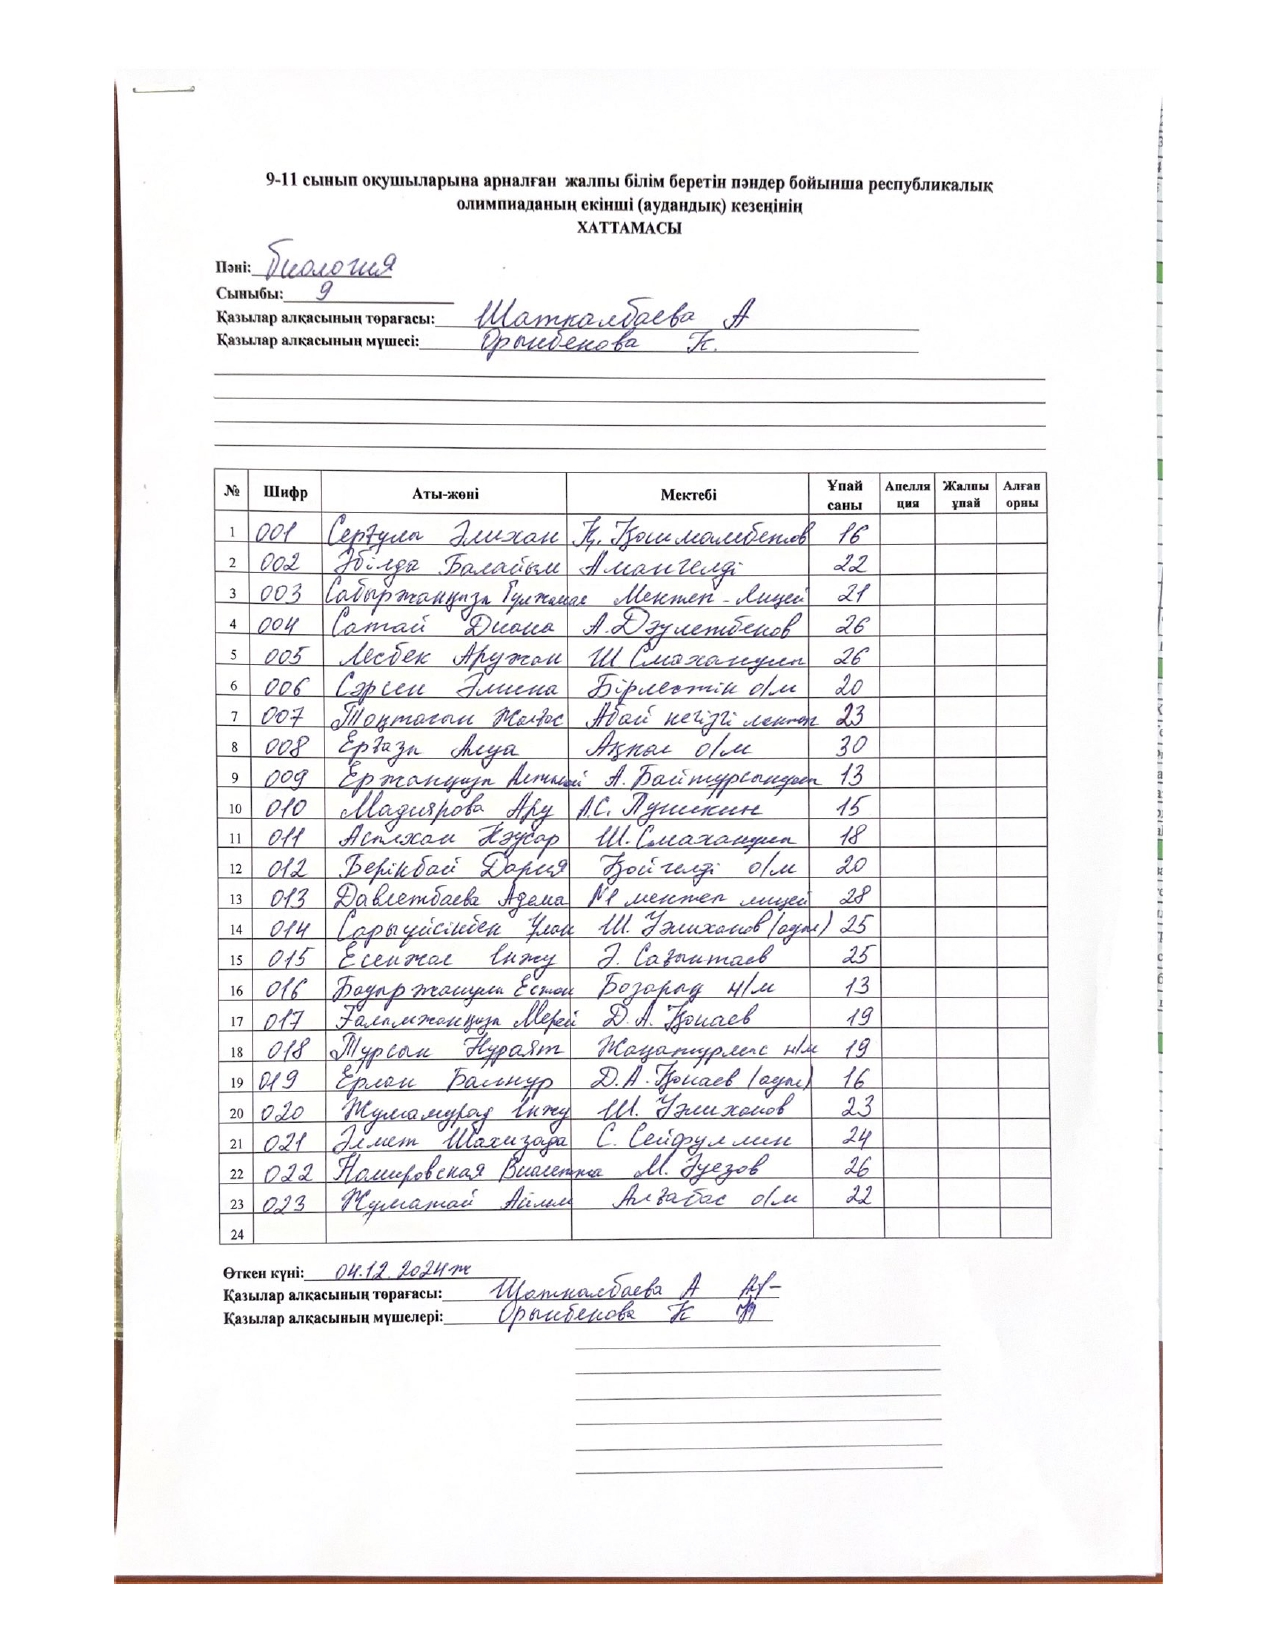 9-11 сынып оқушыларына арналған жалпы білім беретін пәндер бойынша республикалық
олимпиаданың екінші (аудандық) кезеңінің
ХАТТАМАСЫ
Пәні: Биология
Сыныбы: 9
Қазылар алқасының төрағасы: Шаткалбаева А
Қазылар алқасының мүшесі: Орынбекова К.
№ Шифр Аты-жөні Мектебі Ұпай саны Апелляция Жалпы ұпай Алған орны
1 001 Серғұлы Әлихан Қ. Қошмамбетов 16
2 002 Әбілда Балайым Амангелді 22
3 003 Сабыржанқызы Гулжамал Мектеп-Лицей 21
4 004 Сатай Диана А.Дәулетбеков 26
5 005 Лесбек Аружан Ш Смаханұлы 26
6 006 Сәрсен Әмина Бірлестік о/м 20
7 007 Тоқтасын Жалғас Абай негізгі мектеп 23
8 008 Ерғазы Алуа Ақпас о/м 30
9 009 Ержанқызы А. Байтұрсынұлы 13
10 010 Мадиярова Ару А.С. Пушкин 15
11 011 Аспихан Кәусар Ш. Смаханұлы 18
12 012 Берікбай Дария Қойгелді о/м 20
13 013 Давлетбаева Адема №1 мектеп лицей 28
14 014 Сарыүйсінбек Ұлан Ш. Уәлиханов (ауыл) 25
15 015 Есенжол Інжу Ә. Сазынтаев 25
16 016 Бауыржанұлы Естай Бозарық н/м 13
17 017 Ғалымжанқызы Мерей Д.А. Қонаев 19
18 018 Тұрсын Нұраят Жаңатұрмыс н/м 19
19 019 Ерлан Балнұр Д.А. Қонаев (ауыл) 16
20 020 Жұмамұрад Інжу Ш. Уәлиханов 23
21 021 Әлмет Шахизада С. Сейфуллин 24
22 022 Намировская Виолетта М. Әуезов 26
23 023 Жұматай Айлым Алғабас о/м 22
24
Өткен күні: 04.12.2024ж
Қазылар алқасының төрағасы: Шаткалбаева А
Қазылар алқасының мүшелері: Орынбекова К